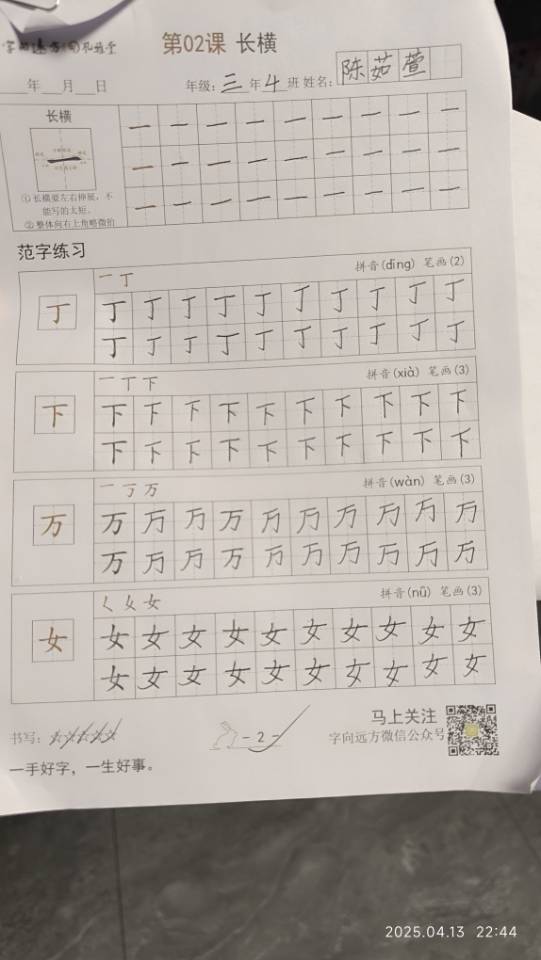 第02课 长横
年 月 日 年级：三年4班 姓名：陈茹萱
长横
一 一 一 一 一 一 一 一 一
一 一 一 一 一 一 一 一 一
①长横要左右伸展，不
能写的太短。
②整体向右上角略微抬
一 一 一 一 一 一 一 一 一
范字练习
一 丁 拼音(dīng) 笔画(2)
丁 丁 丁 丁 丁 丁 丁 丁 丁 丁 丁
丁 丁 丁 丁 丁 丁 丁 丁 丁 丁
一 丁 下 拼音(xià) 笔画(3)
下 下 下 下 下 下 下 下 下 下 下
下 下 下 下 下 下 下 下 下 下
一 丁 万 拼音(wàn) 笔画(3)
万 万 万 万 万 万 万 万 万 万 万
万 万 万 万 万 万 万 万 万 万
く 女 女 拼音(nǚ) 笔画(3)
女 女 女 女 女 女 女 女 女 女 女
女 女 女 女 女 女 女 女 女 女
马上关注
书写：☆☆☆☆☆ - 2 - 字向远方微信公众号
一手好字，一生好事。
2025.04.13 22:44